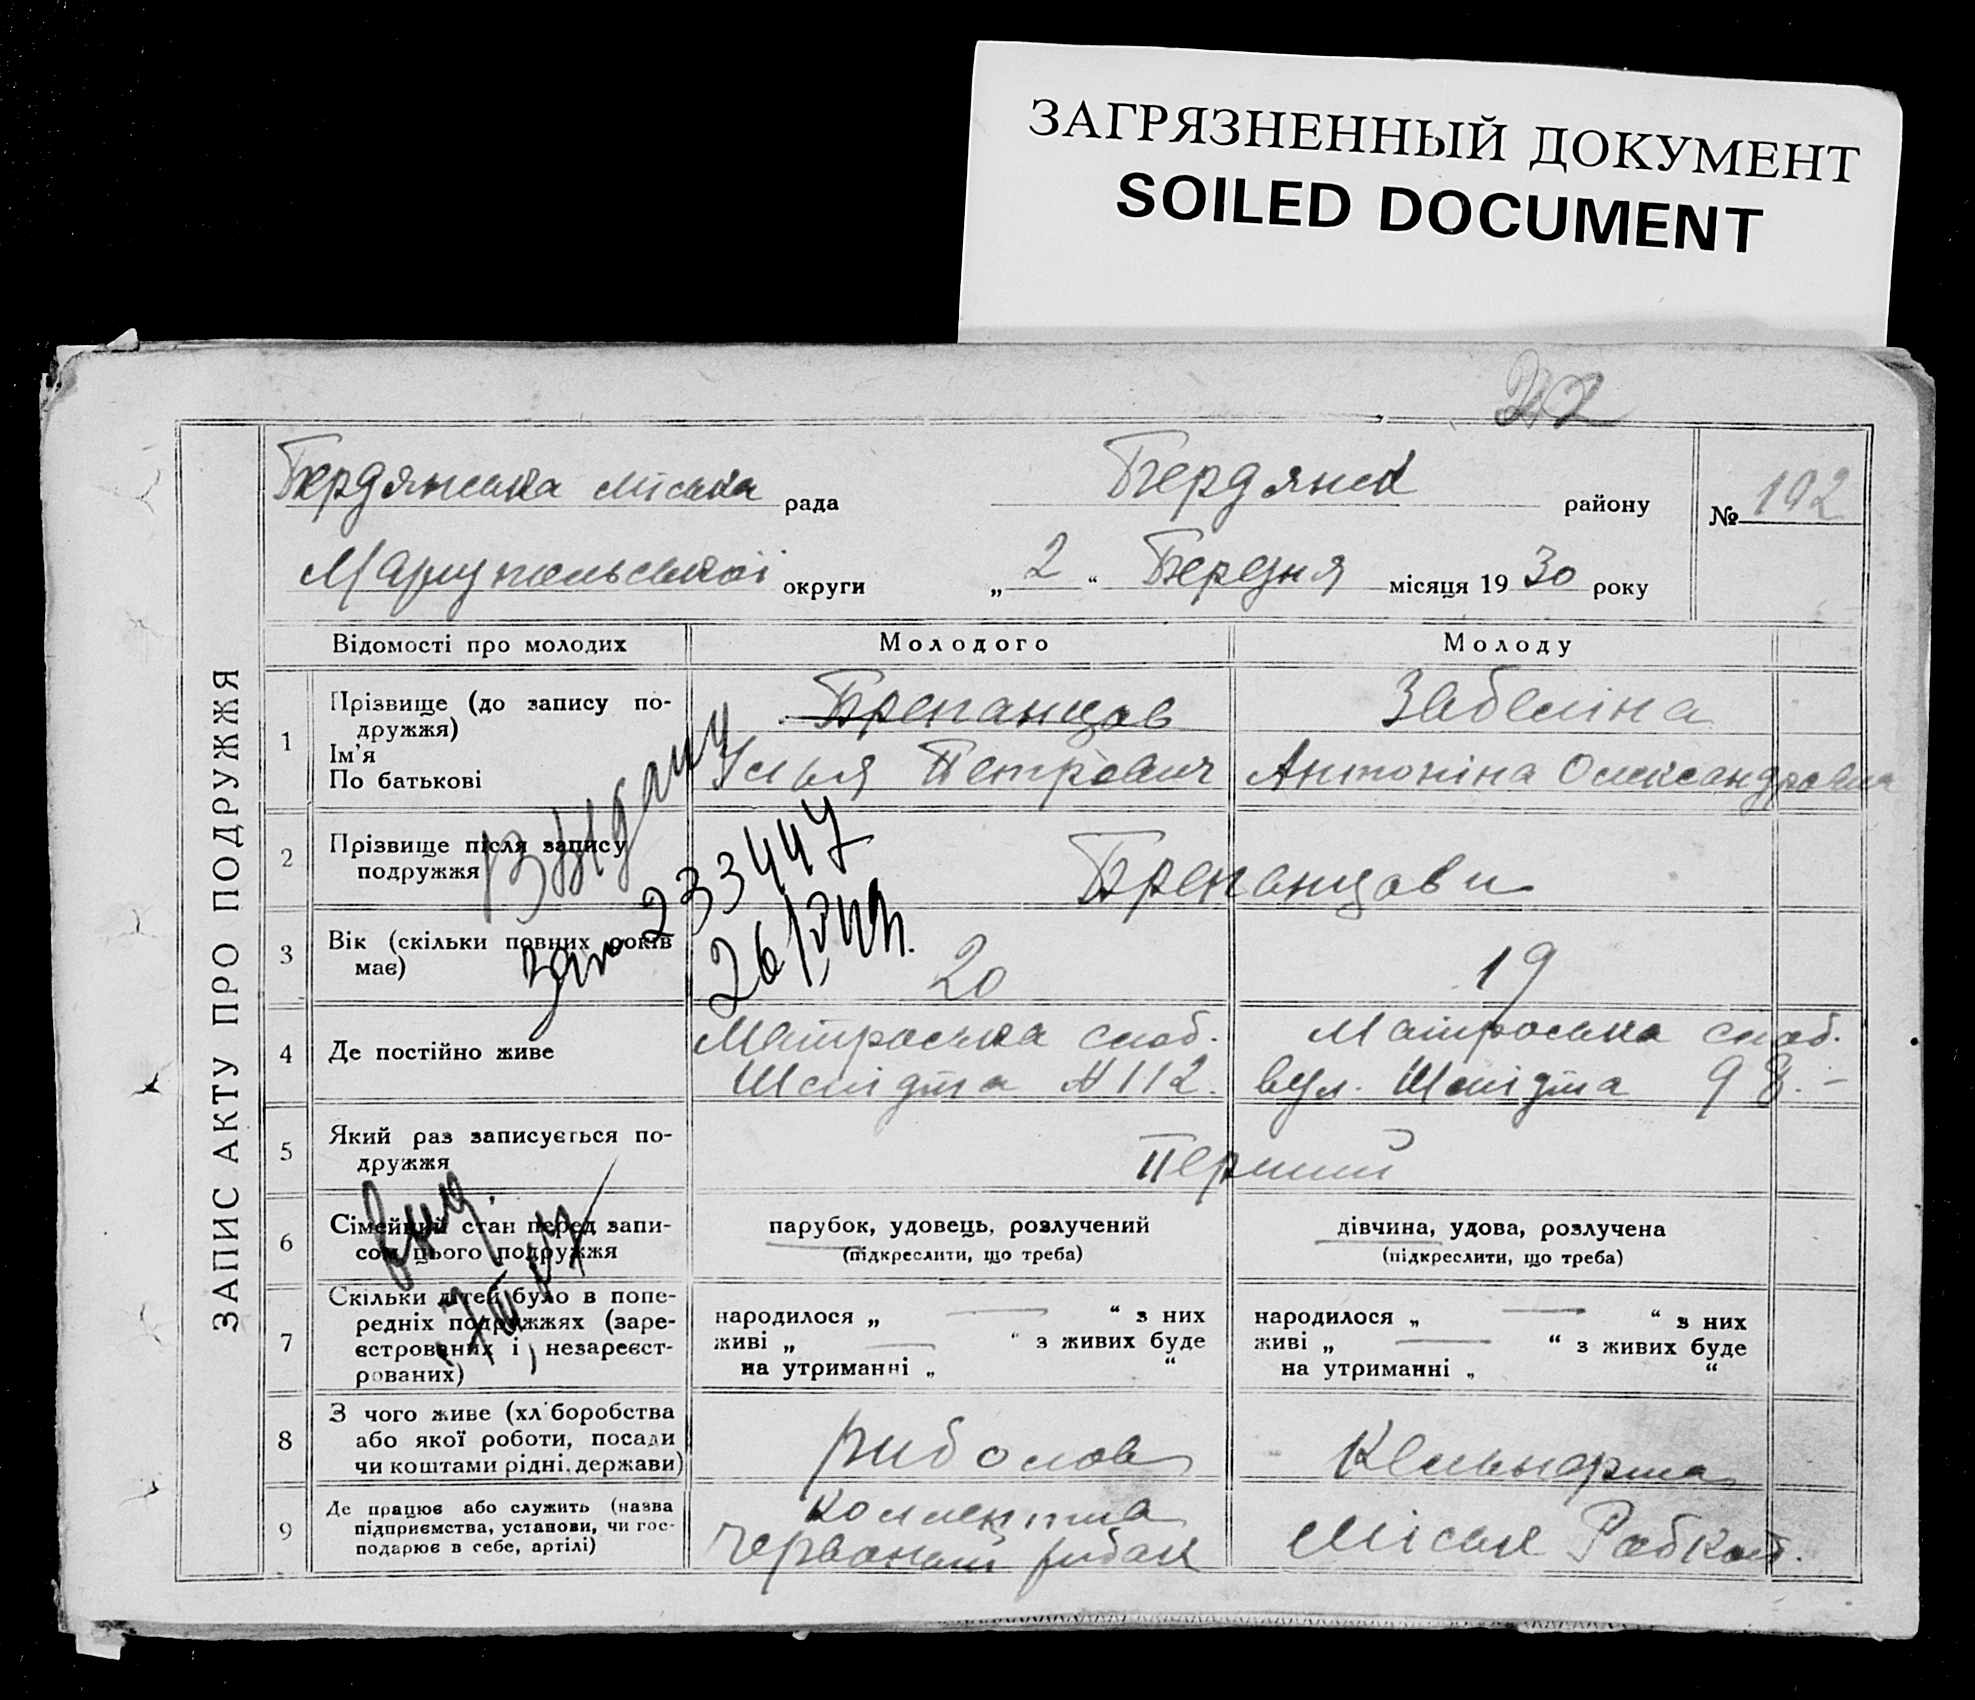 ЗАГРЯЗНЕННЫЙ ДОКУМЕНТ
SOILED DOCUMENT
ЗАПИС АКТУ ПРО ПОДРУЖЖЯ
Бердянська міська рада
Бердянськ району
№ 192
Маріупольської округи
„ 2 “ Березня місяця 19 30 року
Відомості про молодих
Молодого
Молоду
1
Прізвище (до запису по-
дружжя)
Ім'я
По батькові
Брепанцов
Ілья Петрович
Забеліна
Антоніна Олександровна
2
Прізвище після запису
подружжя
Брепанцови
Выдану
233447
3
Вік (скільки повних років
має)
20
19
4
Де постійно живе
Матроська слоб.
Шмідта № 112.
Матроська слоб.
вул. Шмідта 98.-
5
Який раз записується по-
дружжя
Перший
6
Сімейний стан перед запи-
сом цього подружжя
парубок, удовець, розлучений
(підкреслити, що треба)
дівчина, удова, розлучена
(підкреслити, що треба)
7
Скільки дітей було в попе-
редніх подружжях (заре-
єстрованих і незареєст-
рованих)
народилося „ “ з них
живі „ “ з живих буде
на утриманні „ “
народилося „ “ з них
живі „ “ з живих буде
на утриманні „ “
8
З чого живе (хліборобства
або якої роботи, посади
чи коштами рідні, держави)
риболов
Кельнерша
9
Де працює або служить (назва
підприємства, установи, чи гос-
подарює в себе, артілі)
Червоний рибак
Міськ Рабкоп.